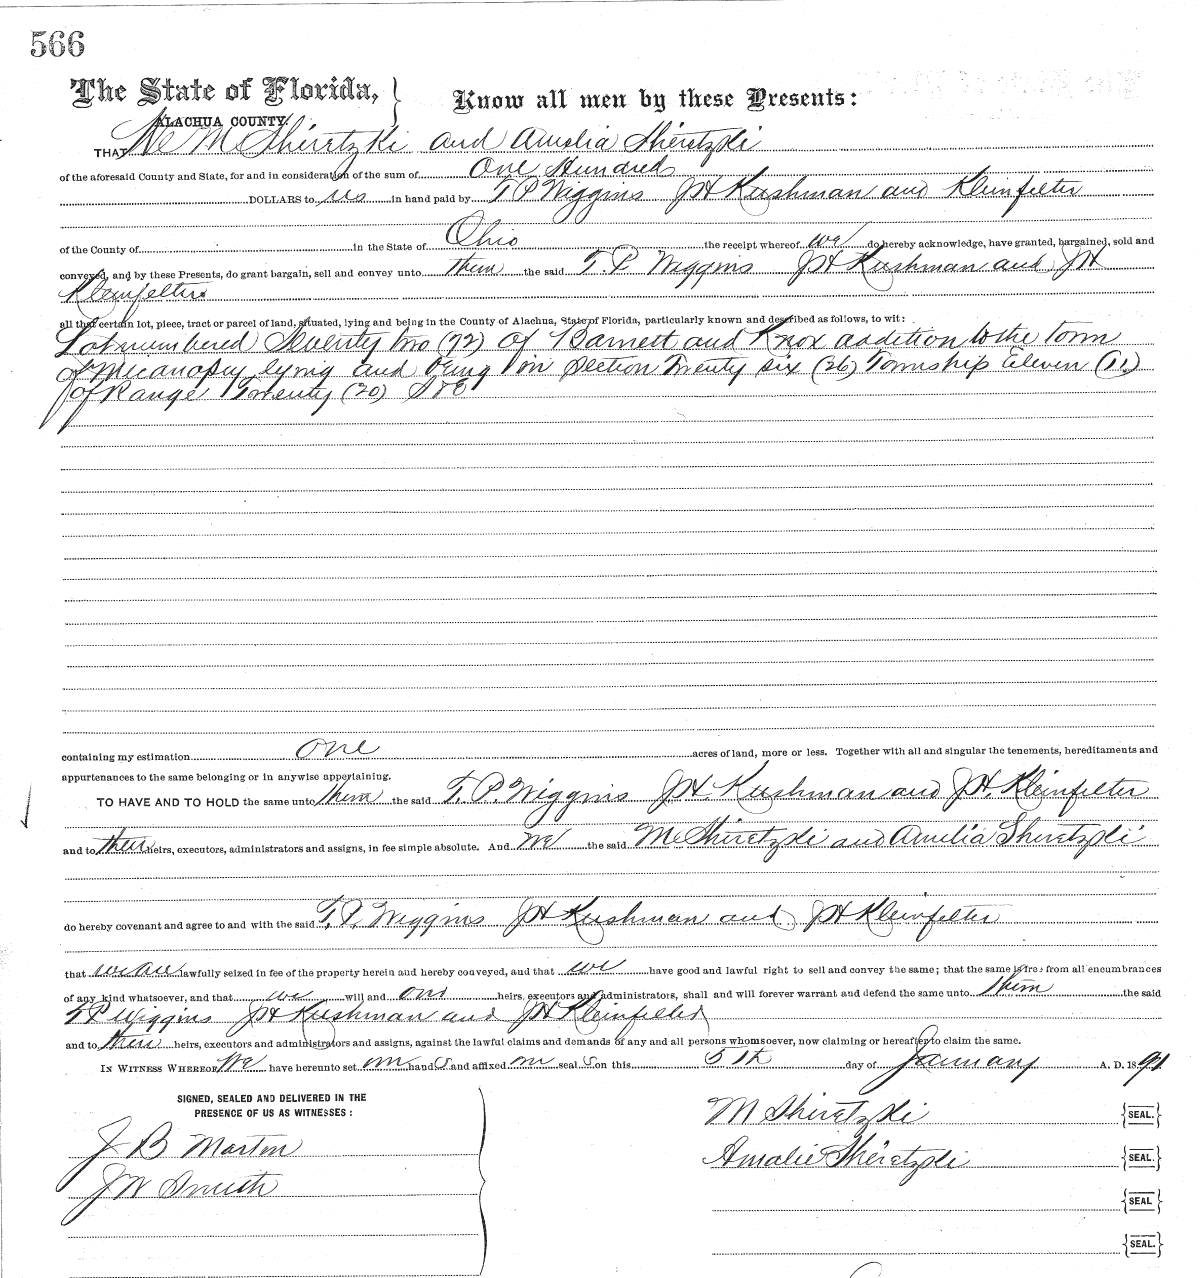 566
The State of Florida, } Know all men by these Presents:
ALACHUA COUNTY.
THAT We M Shiretzki and Amelia Shiretzki
of the aforesaid County and State, for and in consideration of the sum of One Hundred
DOLLARS to us in hand paid by T P Wiggins J H Kushman and Kleinfelter
of the County of in the State of Ohio the receipt whereof we do hereby acknowledge, have granted, bargained, sold and
conveyed, and by these Presents, do grant bargain, sell and convey unto them the said T. P. Wiggins J H Kushman and J H
Kleinfelter
all that certain lot, piece, tract or parcel of land, situated, lying and being in the County of Alachua, State of Florida, particularly known and described as follows, to wit:
Lot numbered Seventy two (72) of Barnett and Knox addition to the town
of Micanopy lying and being in Section Twenty six (26) Township Eleven (11)
of Range Twenty (20) S & E
containing my estimation one acres of land, more or less. Together with all and singular the tenements, hereditaments and
appurtenances to the same belonging or in anywise appertaining.
TO HAVE AND TO HOLD the same unto them the said T. P. Wiggins J H. Kushman and J H. Kleinfelter
and to their heirs, executors, administrators and assigns, in fee simple absolute. And We the said M Shiretzki and Amelia Shiretzki
do hereby covenant and agree to and with the said T. P. Wiggins J H Kushman and J H Kleinfelter
that we are lawfully seized in fee of the property herein and hereby conveyed, and that we have good and lawful right to sell and convey the same; that the same is free from all encumbrances
of any kind whatsoever, and that we will and our heirs, executors and administrators, shall and will forever warrant and defend the same unto them the said
T P Wiggins J H Kushman and J H Kleinfelter
and to their heirs, executors and administrators and assigns, against the lawful claims and demands of any and all persons whomsoever, now claiming or hereafter to claim the same.
IN WITNESS WHEREOF We have hereunto set our hand s and affixed our seal s on this 5th day of January A. D. 1891
SIGNED, SEALED AND DELIVERED IN THE
PRESENCE OF US AS WITNESSES:
J B Martin
J W Smith
M Shiretzki {SEAL.}
Amalie Shiretzki {SEAL.}
{SEAL}
{SEAL.}